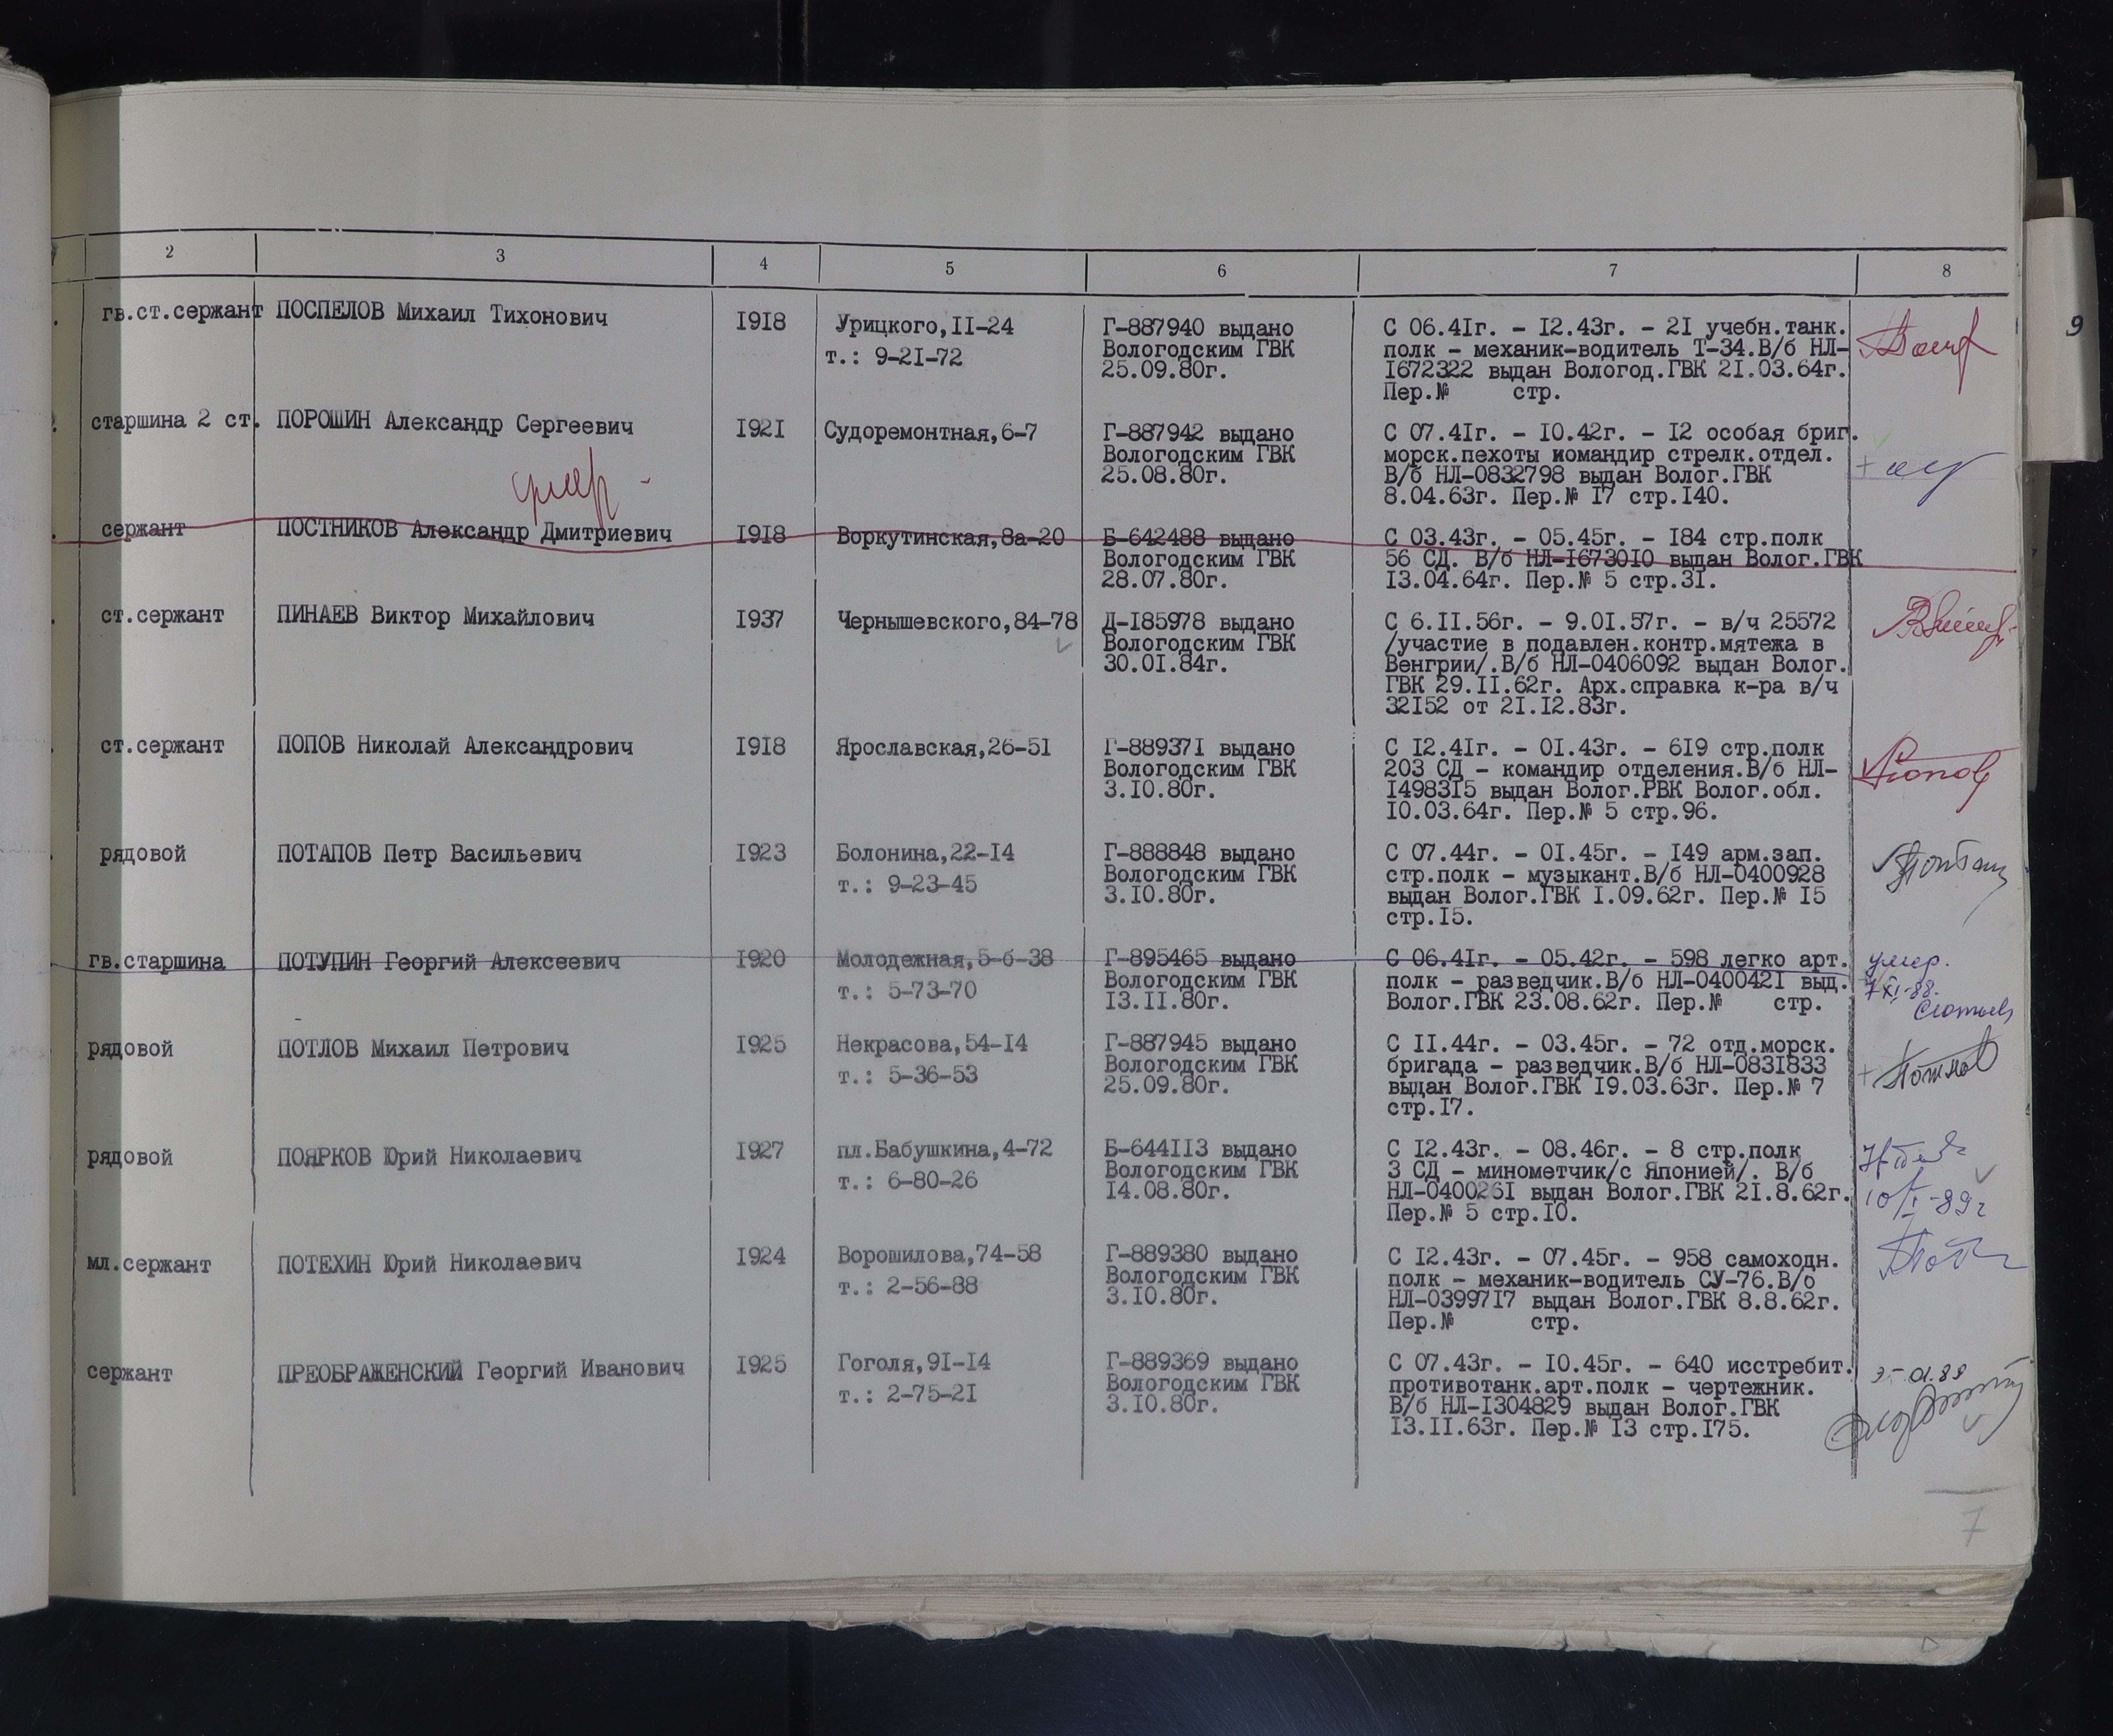 2 3 4 5 6 7 8
9
гв.ст.сержант ПОСПЕЛОВ Михаил Тихонович 1918 Урицкого,11-24 Г-887940 выдано С 06.41г. - 12.43г. - 21 учебн.танк.
т.: 9-21-72 Вологодским ГВК полк - механик-водитель Т-34.В/б НЛ-
25.09.80г. 1672322 выдан Вологод.ГВК 21.03.64г.
Пер.№ стр.
старшина 2 ст. ПОРОШИН Александр Сергеевич 1921 Судоремонтная,6-7 Г-887942 выдано С 07.41г. - 10.42г. - 12 особая бриг.
Вологодским ГВК морск.пехоты командир стрелк.отдел.
25.08.80г. В/б НЛ-0832798 выдан Волог.ГВК
8.04.63г. Пер.№ 17 стр.140.
умер -
сержант ПОСТНИКОВ Александр Дмитриевич 1918 Воркутинская,8а-20 Б-642488 выдано С 03.43г. - 05.45г. - 184 стр.полк
Вологодским ГВК 56 СД. В/б НЛ-1673010 выдан Волог.ГВК
28.07.80г. 13.04.64г. Пер.№ 5 стр.31.
ст.сержант ПИНАЕВ Виктор Михайлович 1937 Чернышевского,84-78 Д-185978 выдано С 6.11.56г. - 9.01.57г. - в/ч 25572
Вологодским ГВК /участие в подавлен.контр.мятежа в
30.01.84г. Венгрии/.В/б НЛ-0406092 выдан Волог.
ГВК 29.11.62г. Арх.справка к-ра в/ч
32152 от 21.12.83г.
ст.сержант ПОПОВ Николай Александрович 1918 Ярославская,26-51 Г-889371 выдано С 12.41г. - 01.43г. - 619 стр.полк
Вологодским ГВК 203 СД - командир отделения.В/б НЛ-
3.10.80г. 1498315 выдан Волог.РВК Волог.обл.
10.03.64г. Пер.№ 5 стр.96.
Попов
рядовой ПОТАПОВ Петр Васильевич 1923 Болонина,22-14 Г-888848 выдано С 07.44г. - 01.45г. - 149 арм.зап.
т.: 9-23-45 Вологодским ГВК стр.полк - музыкант.В/б НЛ-0400928
3.10.80г. выдан Волог.ГВК 1.09.62г. Пер.№ 15
стр.15.
гв.старшина ПОТУПИН Георгий Алексеевич 1920 Молодежная,5-б-38 Г-895465 выдано С 06.41г. - 05.42г. - 598 легко арт. умер.
т.: 5-73-70 Вологодским ГВК полк - разведчик.В/б НЛ-0400421 выд. 7 XI-88.
13.11.80г. Волог.ГВК 23.08.62г. Пер.№ стр.
рядовой ПОТЛОВ Михаил Петрович 1925 Некрасова,54-14 Г-887945 выдано С 11.44г. - 03.45г. - 72 отд.морск.
т.: 5-36-53 Вологодским ГВК бригада - разведчик.В/б НЛ-0831833
25.09.80г. выдан Волог.ГВК 19.03.63г. Пер.№ 7
стр.17.
рядовой ПОЯРКОВ Юрий Николаевич 1927 пл.Бабушкина,4-72 Б-644113 выдано С 12.43г. - 08.46г. - 8 стр.полк
т.: 6-80-26 Вологодским ГВК 3 СД - минометчик/с Японией/. В/б
14.08.80г. НЛ-0400261 выдан Волог.ГВК 21.8.62г. 10/I-89г
Пер.№ 5 стр.10.
мл.сержант ПОТЕХИН Юрий Николаевич 1924 Ворошилова,74-58 Г-889380 выдано С 12.43г. - 07.45г. - 958 самоходн.
т.: 2-56-88 Вологодским ГВК полк - механик-водитель СУ-76.В/б
3.10.80г. НЛ-0399717 выдан Волог.ГВК 8.8.62г.
Пер.№ стр.
сержант ПРЕОБРАЖЕНСКИЙ Георгий Иванович 1925 Гоголя,91-14 Г-889369 выдано С 07.43г. - 10.45г. - 640 исстребит.
т.: 2-75-21 Вологодским ГВК противотанк.арт.полк - чертежник.
3.10.80г. В/б НЛ-1304829 выдан Волог.ГВК
13.11.63г. Пер.№ 13 стр.175.
7